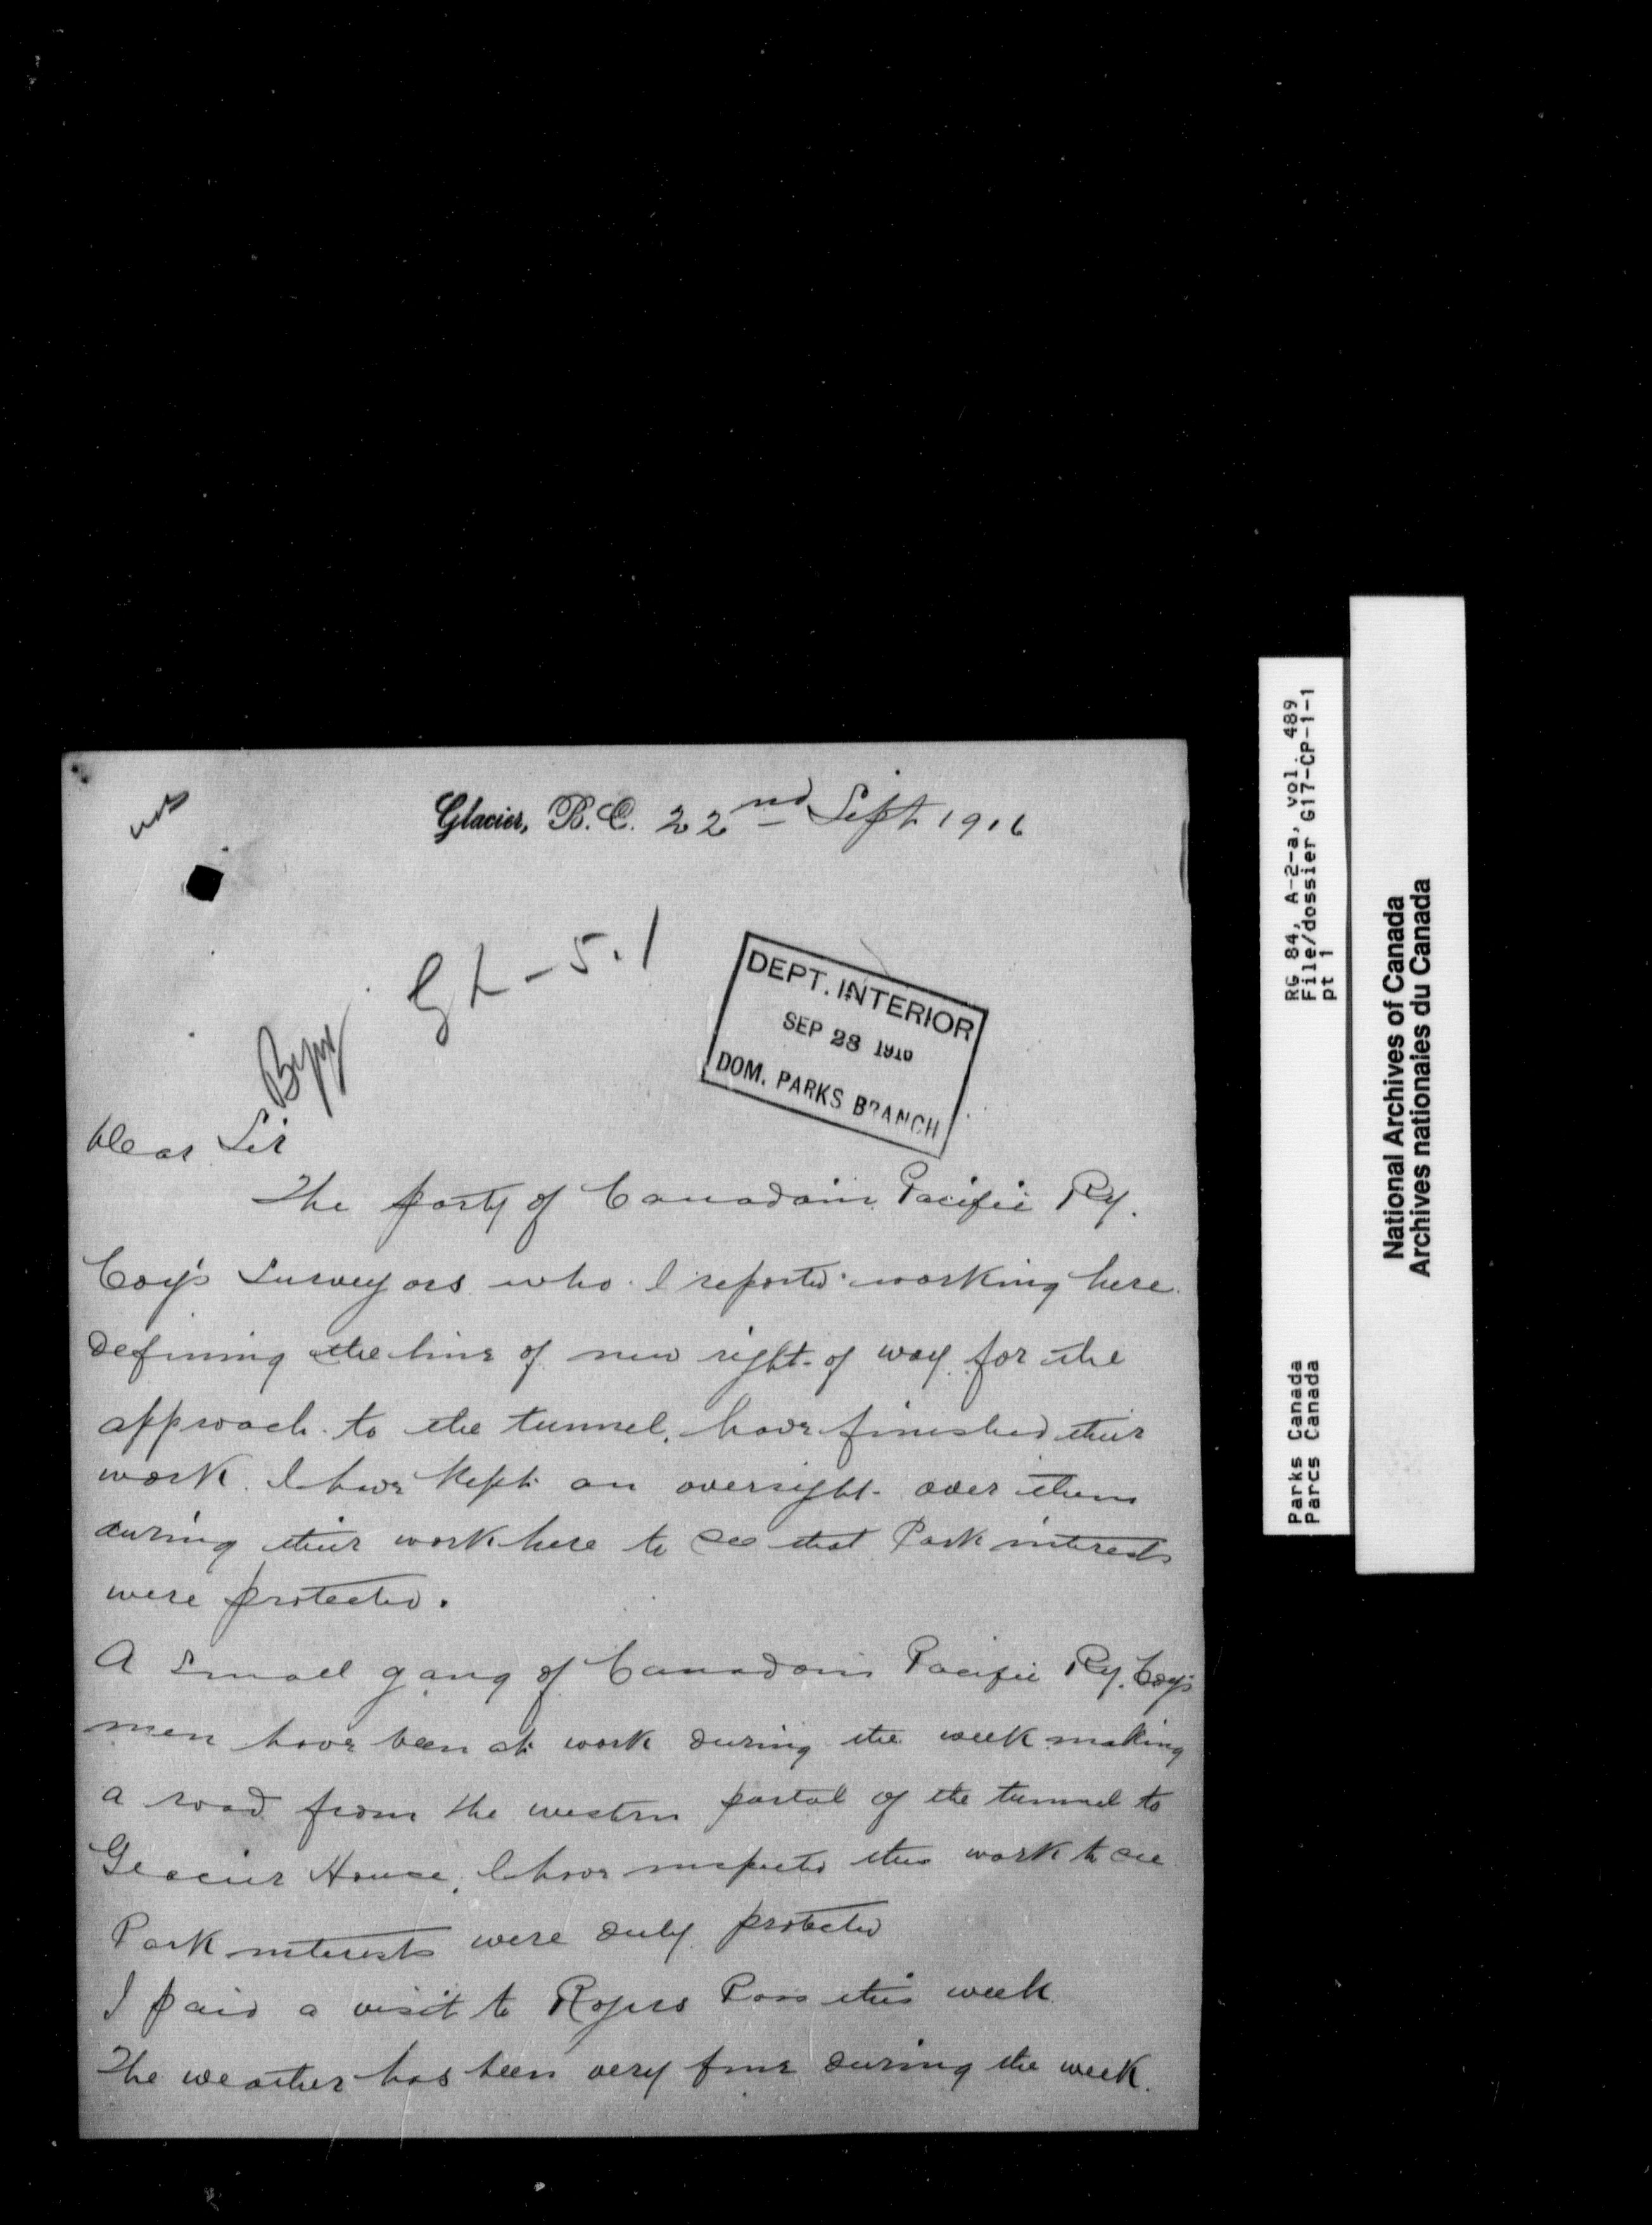 Glacier, B.C. 22nd Sept 1916
GL-5.1
DEPT. INTERIOR
SEP 28 1916
DOM. PARKS BRANCH
Dear Sir
The party of Canadain Pacific Ry.
Coy's Surveyors who I reported working here
defining the line of new right of way for the
approach to the tunnel, have finished their
work. I have kept an oversight over them
during their work here to see that Park interests
were protected.
A small gang of Canadain Pacific Ry. Coy's
men have been at work during the week making
a road from the western portal of the tunnel to
Glacier House, I have inspected this work to see
Park interests were duly protected
I paid a visit to Rogers Pass this week
The weather has been very fine during the week.
RG 84, A-2-a, vol. 489
File/dossier G17-CP-1-1
pt 1
Parks Canada
Parcs Canada
National Archives of Canada
Archives nationales du Canada